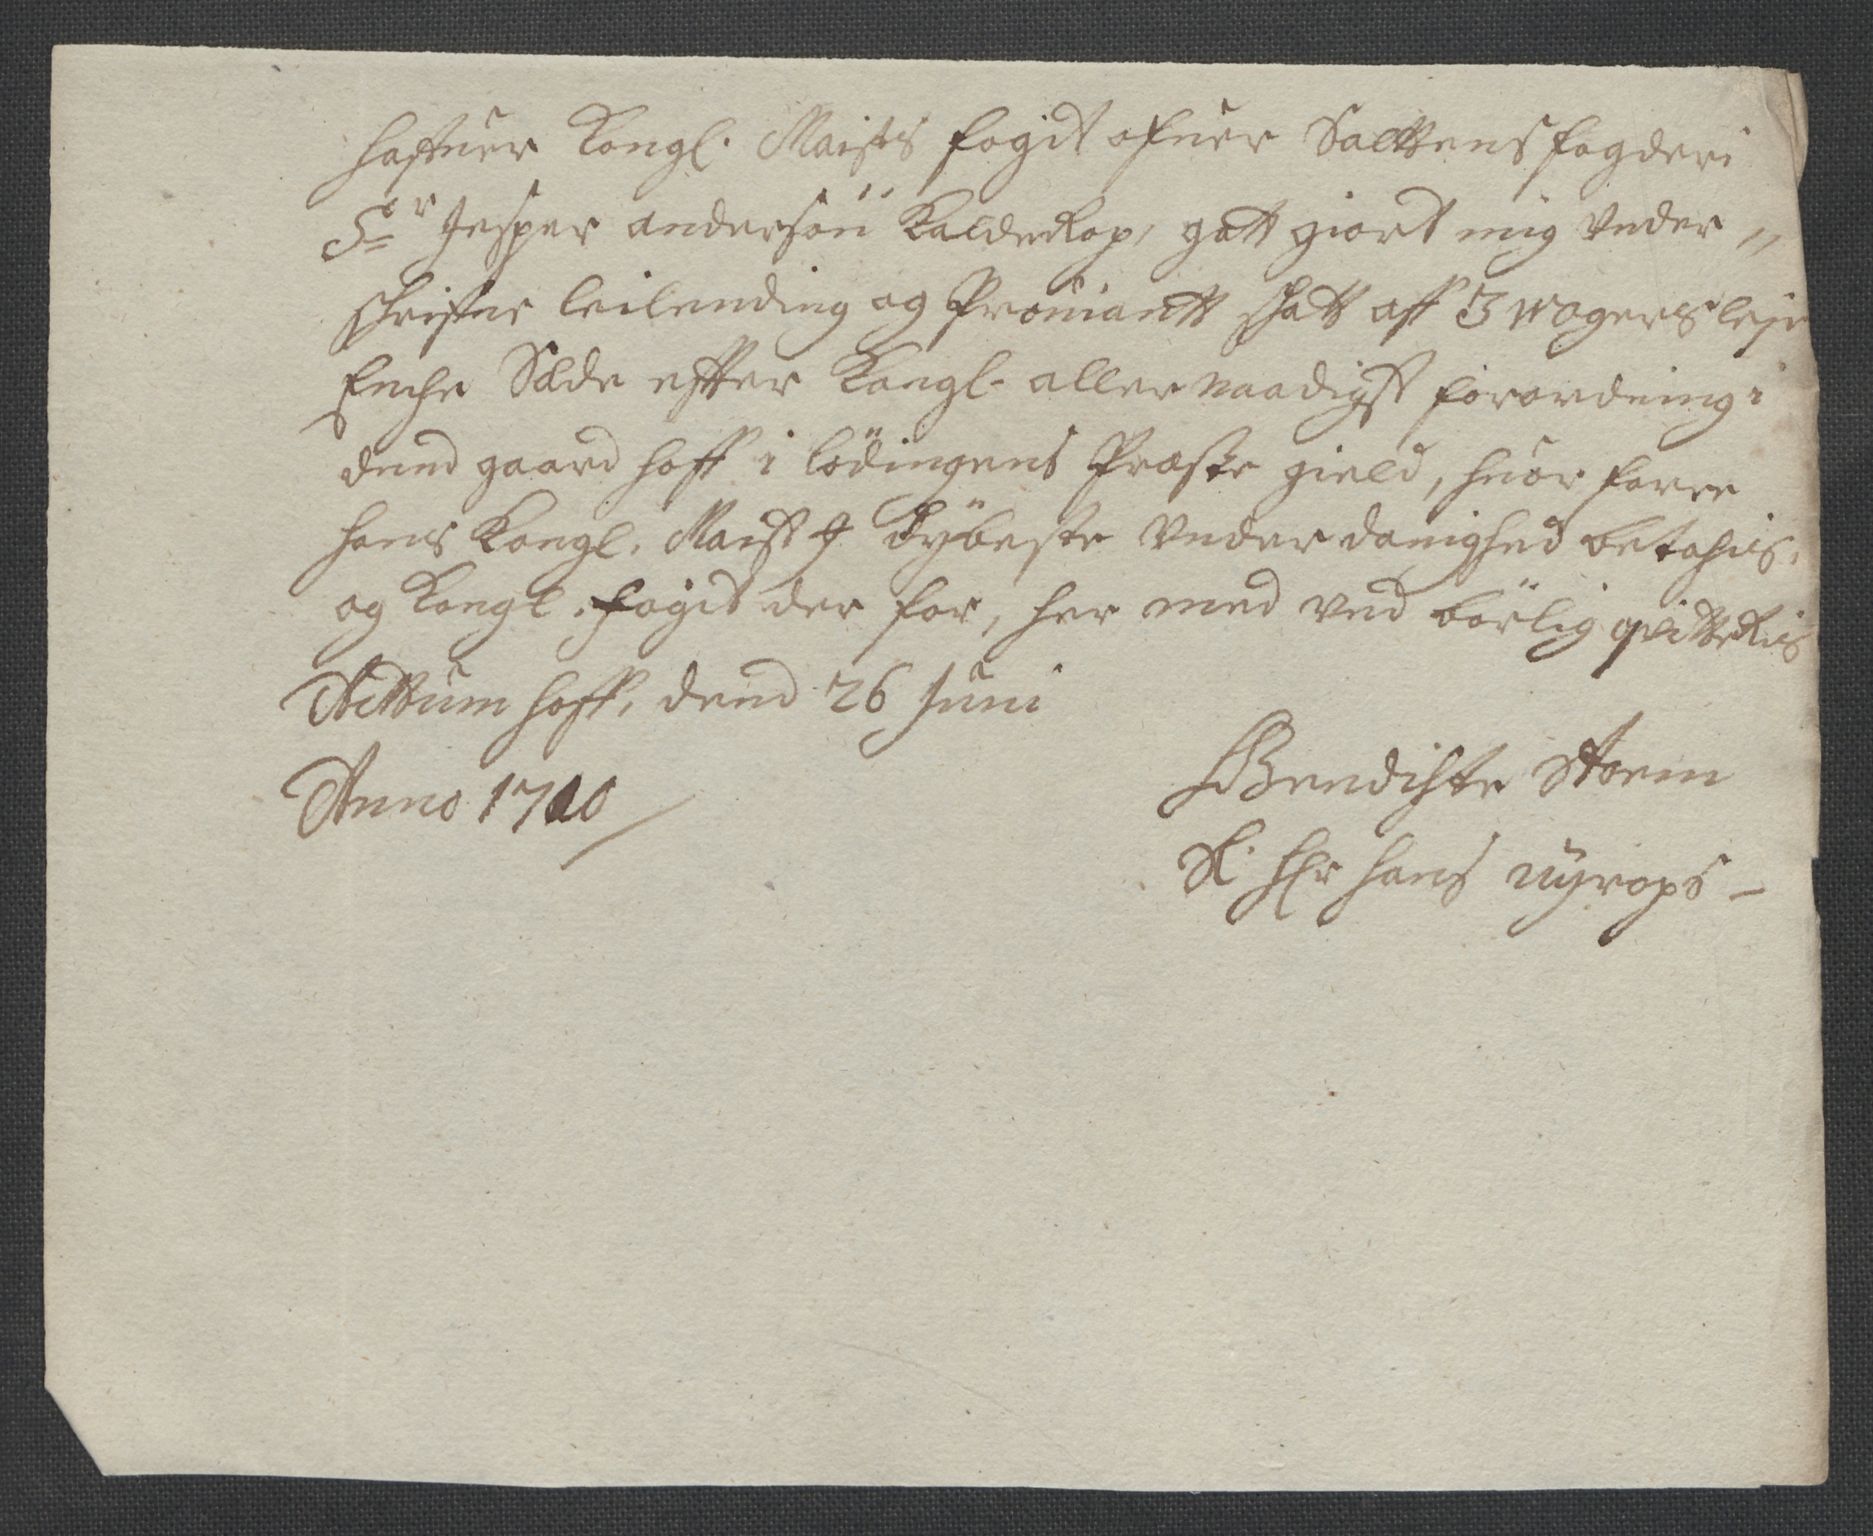 Hafuer Kongl. Maists fogit ofuer Salttens fogderi
Sr Jesper andersön KaldeRop, gott giort mig Vnder„
schrifne leilending og Prouiantt schatt aff 3 Wogers leje
Enche Sæde effter Kongl. aller naadigst forordning i
dend gaard Hoff i lödingens Præste gield, huor forre
Hans Kongl. Maist J dÿbeste Vnder danighed betachis,
og Kongl. fogit der for, her med ved börlig qvitteRis
Acttum Hoff, dend 26 Juni
Anno 1710
Bendichte Storm
Sl. Hr Hans nyrops –